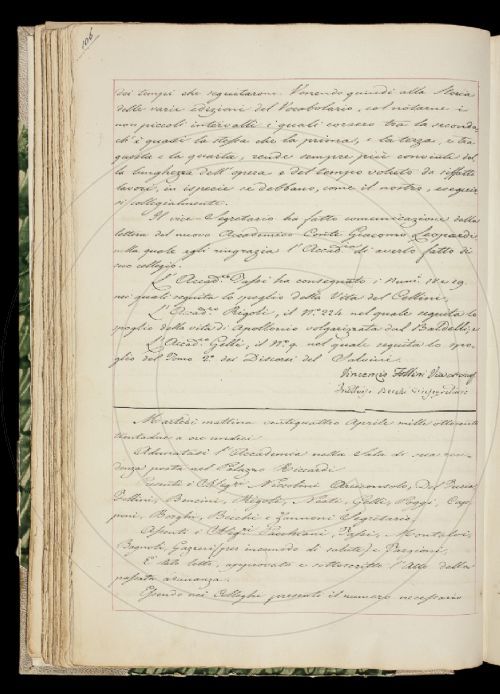 106
dei tempi che seguitarono. Venendo quindi alla Storia
delle varie edizioni del Vocabolario, col notarne i
non piccoli intervalli i quali corsero tra la seconda
ch'è quasi la stessa che la prima, e la terza, e tra
questa e la quarta, rende sempre più convinti del
la lunghezza dell'opera e del tempo voluto da siffatti
lavori, in ispecie se debbano, come il nostro, eseguir
si collegialmente.
Il vice-Segretario ha fatto comunicazione della
lettera del nuovo Accademico Conte Giacomo Leopardi
nella quale egli ringrazia l'Accad. di averlo fatto di
suo collegio.
L'Accad. Tassi ha consegnato i Num. 18 e 19
nei quali seguita lo spoglio della Vita del Cellini.
L'Accad. Rigoli, il N. 224 nel quale seguita lo
spoglio della vita di Apollonio volgarizzata dal Baldelli, e
L'Accad. Gelli, il N. 9 nel quale seguita lo spo-
glio del Tomo 2. dei Discorsi del Salvini.
Vincenzio Follini
Fruttuoso Becchi
Martedì mattina ventiquattro Aprile mille ottocento
trentadue a ore undici
Adunatasi l'Accademia nella Sala di sua resi-
denza posta nel Palazzo Riccardi
Presenti i Niccolini Arciconsolo, Del Furia
Follini, Bencini, Rigoli, Nesti, Gelli, Poggi, Cap-
poni, Borghi, Becchi e Zannoni Segretario
Assenti i Tassi, Montalvi,
Bagnoli, Gazzeri (per incomodo di salute) e
È stato letto, approvato e sottoscritto l'Atto della
passata adunanza.
Essendo noi Colleghi presenti il numero necessario